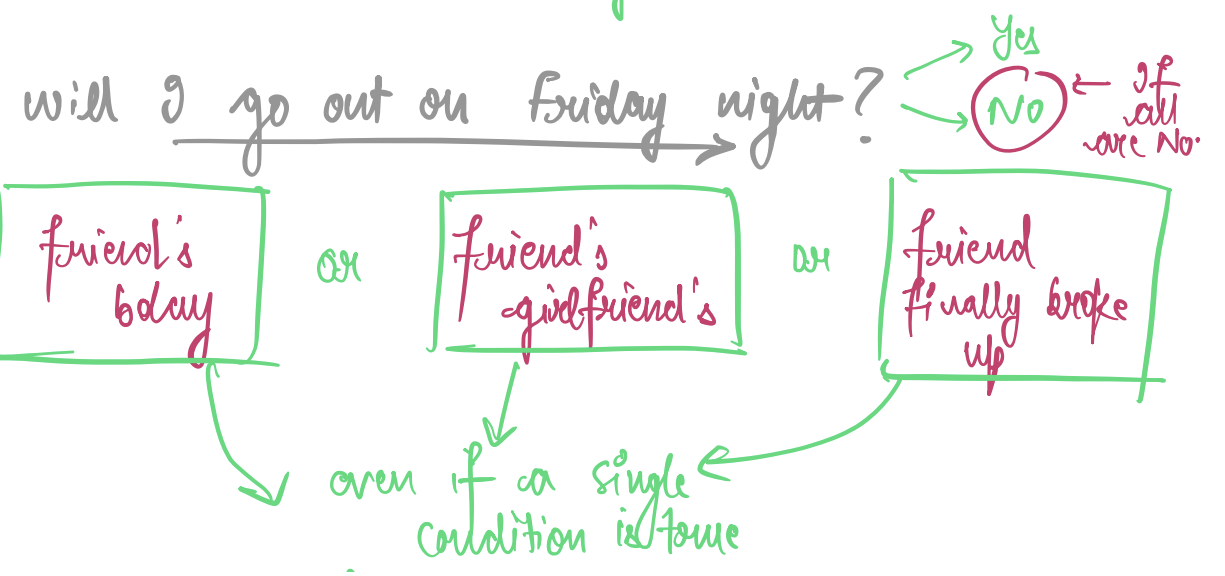 Yes
will I go out on friday night?
No
If
all
are No.
friend's
bday
or
friend's
girlfriend's
or
friend
finally broke
up
even if a single
condition is true